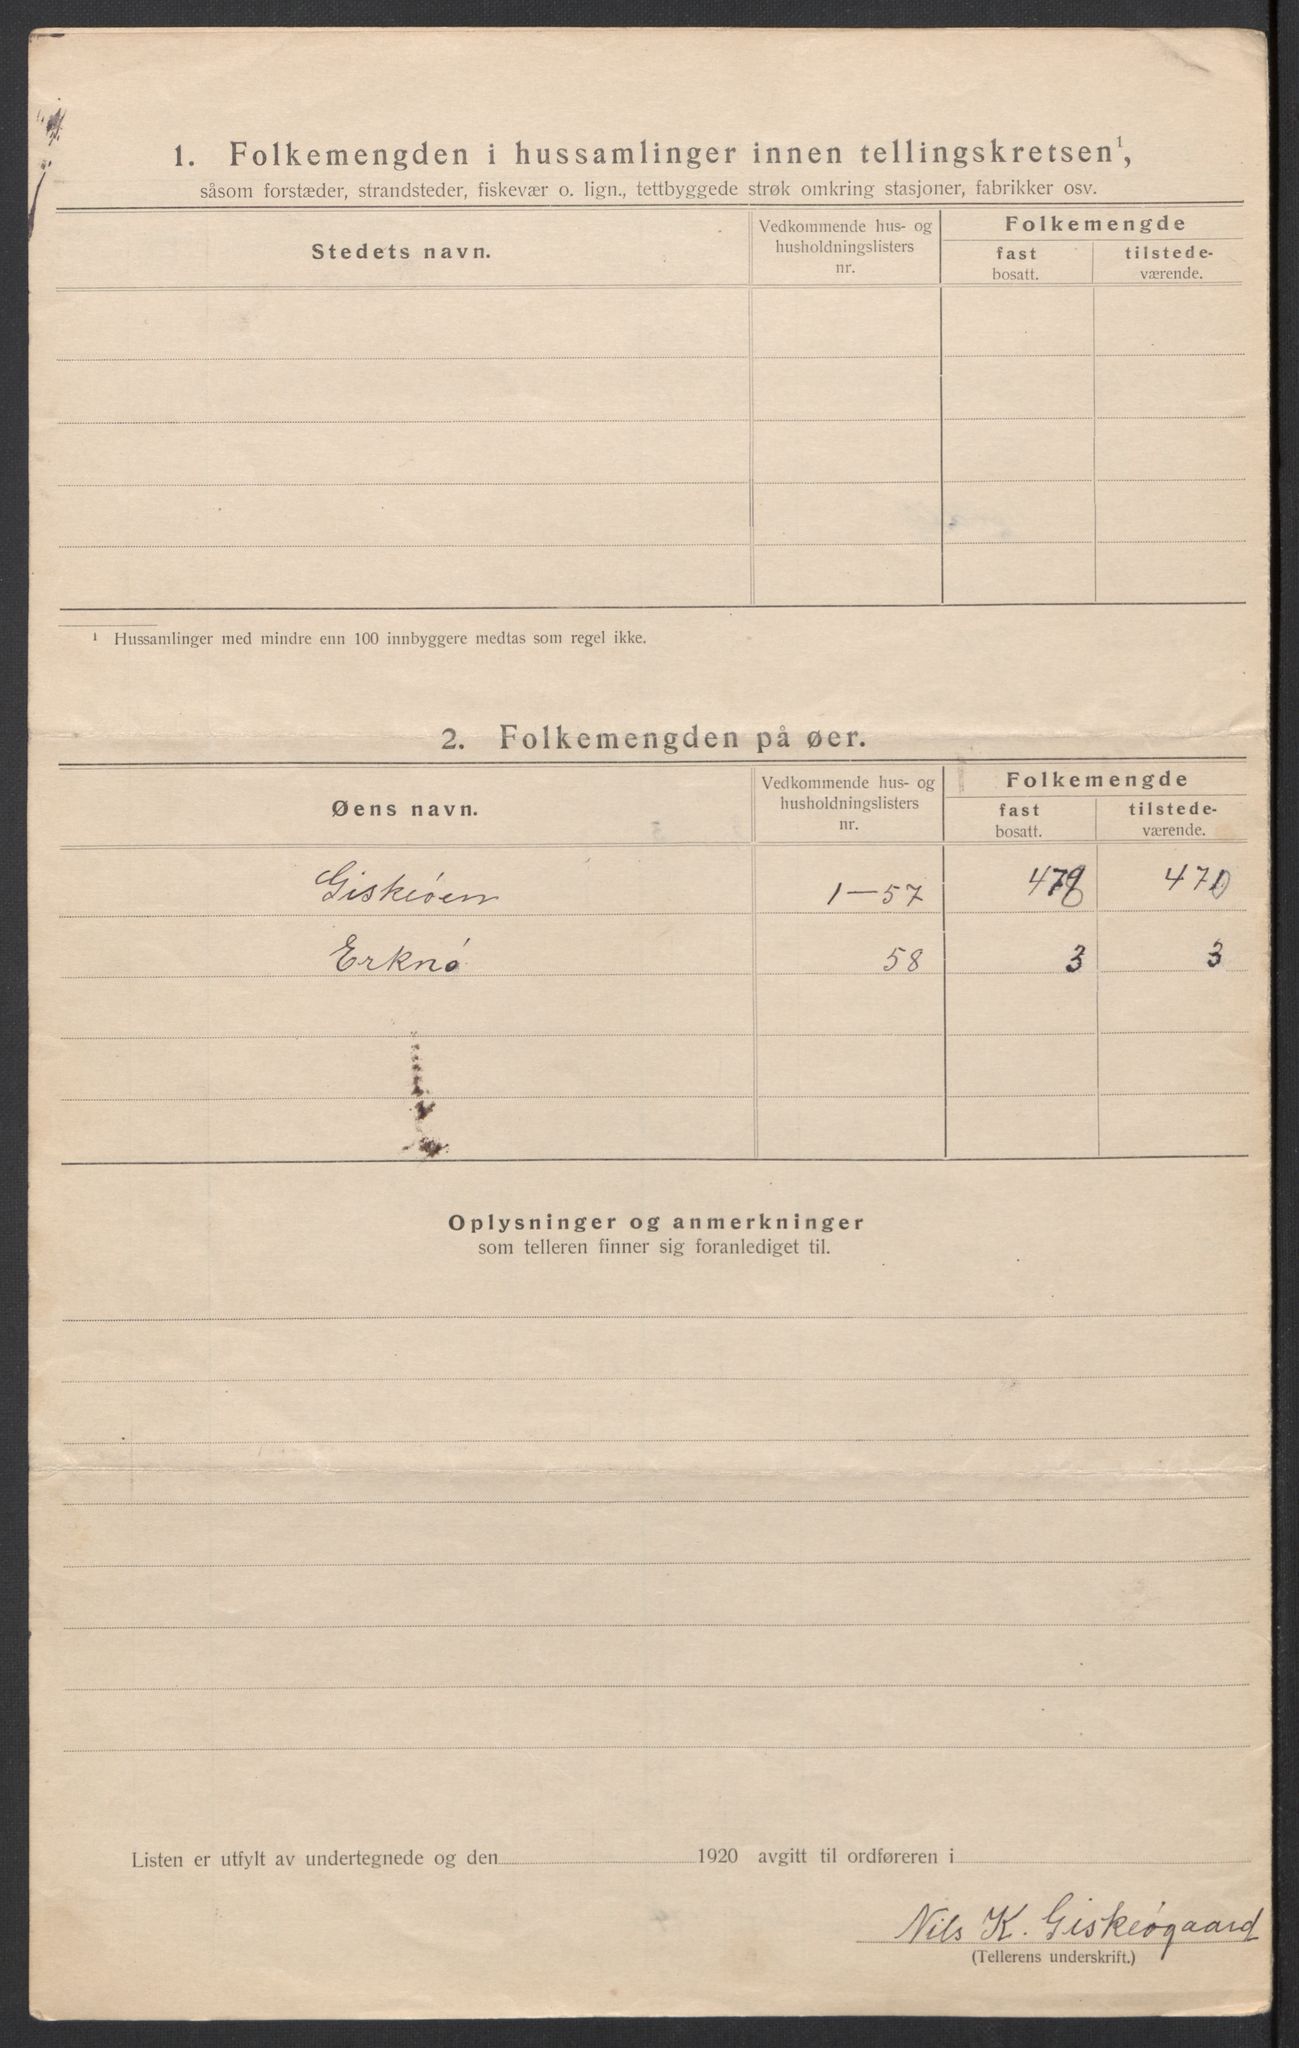 1. Folkemengden i hussamlinger innen tellingskretsen¹,
såsom forstæder, strandsteder, fiskevær o. lign., tettbyggede strøk omkring stasjoner, fabrikker osv.
Stedets navn.
Vedkommende hus- og
husholdningslisters
nr.
Folkemengde
fast
bosatt.
tilstede-
værende.
¹ Hussamlinger med mindre enn 100 innbyggere medtas som regel ikke.
2. Folkemengden på øer.
Øens navn.
Vedkommende hus- og
husholdningslisters
nr.
Folkemengde
fast
bosatt.
tilstede-
værende.
Giskeøen 1—57 478 470
Erknø 58 3 3
Oplysninger og anmerkninger
som telleren finner sig foranlediget til.
Listen er utfylt av undertegnede og den 1920 avgitt til ordføreren i
Nils K. Giskeøgaard
(Tellerens underskrift.)